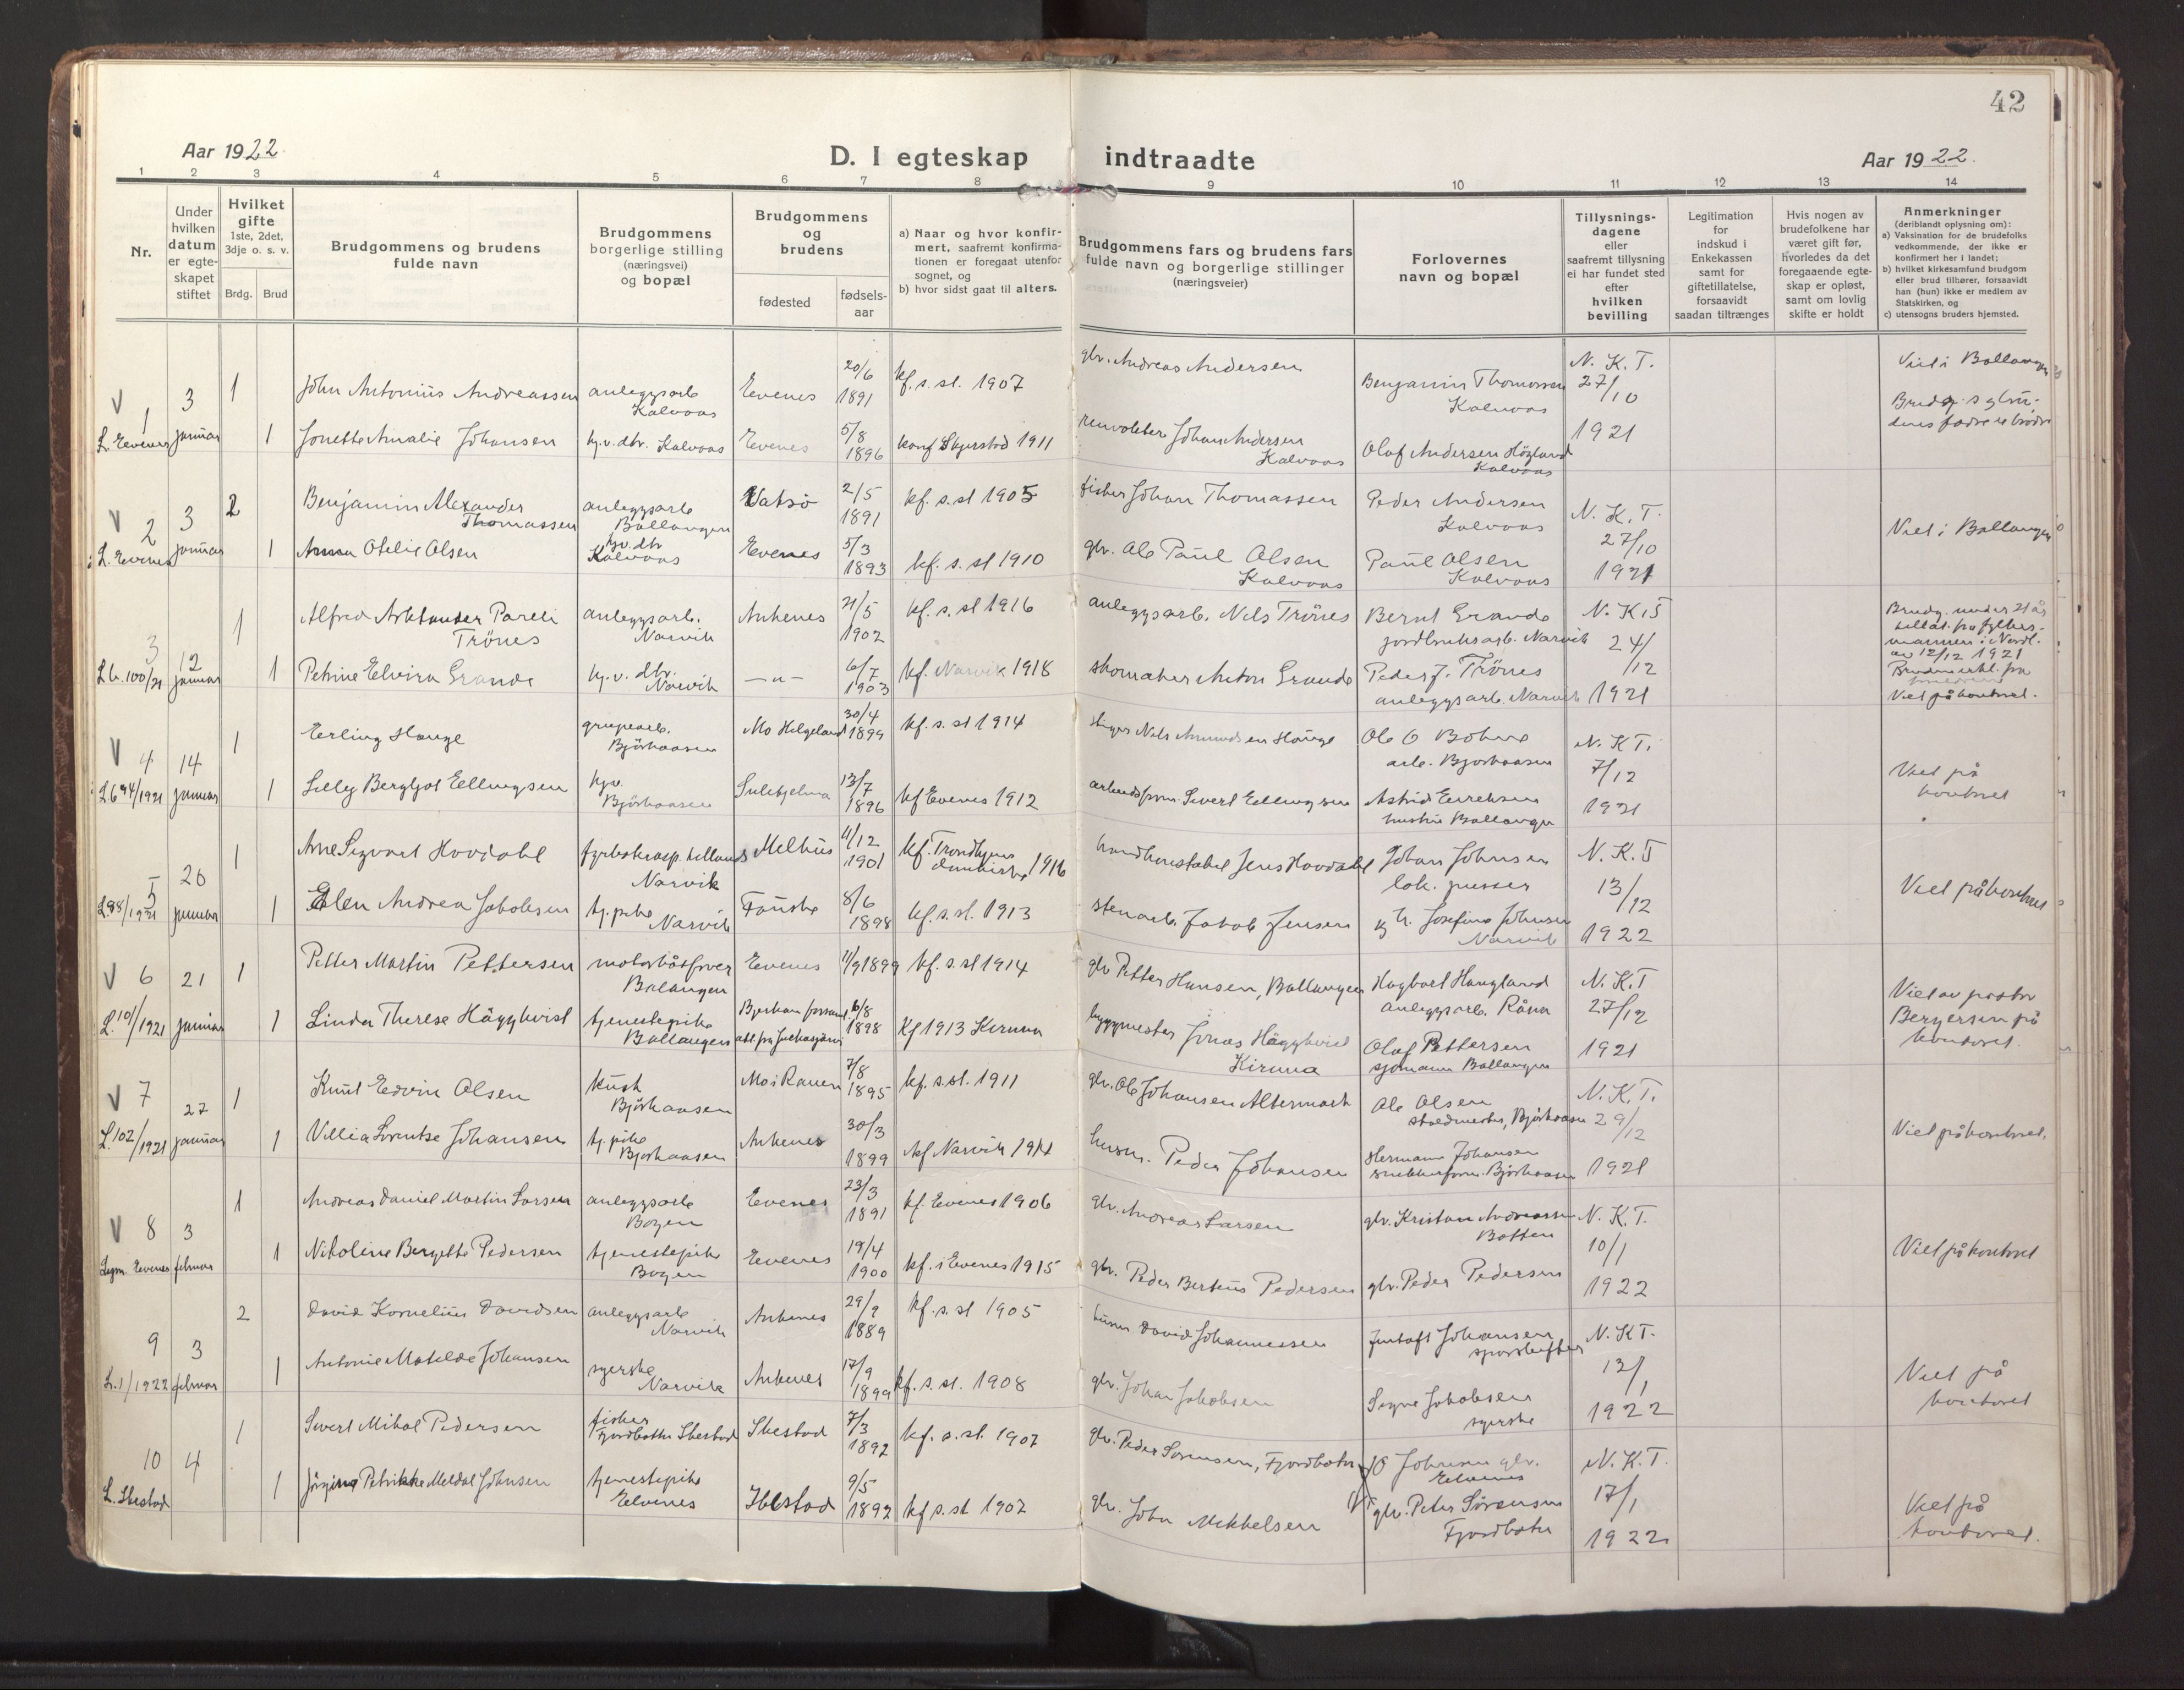 42
Aar 1922
D. I egteskap indtraadte
Aar 1922.
1 2 3 4 5 6 7 8 9 10 11 12 13 14
Nr.
Under hvilken datum er egte-skapet stiftet
Hvilket gifte
1ste, 2det, 3dje o. s. v.
Brdg. Brud
Brudgommens og brudens fulde navn
Brudgommens borgerlige stilling (næringsvei) og bopæl
Brudgommens og brudens
fødested
fødsels-aar
a) Naar og hvor konfir-mert, saafremt konfirma-tionen er foregaat utenfor sognet, og
b) hvor sidst gaat til alters.
Brudgommens fars og brudens fars fulde navn og borgerlige stillinger (næringsveier)
Forlovernes navn og bopæl
Tillysnings-dagene eller saafremt tillysning ei har fundet sted efter hvilken bevilling
Legitimation for indskud i Enkekassen samt for giftetillatelse, forsaavidt saadan tiltrænges
Hvis nogen av brudefolkene har været gift før, hvorledes da det foregaaende egte-skap er opløst, samt om lovlig skifte er holdt
Anmerkninger
(deriblandt oplysning om):
a) Vaksination for de brudefolks vedkommende, der ikke er konfirmert her i landet;
b) hvilket kirkesamfund brudgom eller brud tilhører, forsaavidt han (hun) ikke er medlem av Statskirken, og
c) utensogns bruders hjemsted.
V 1 3 januar 1 John Antonius Andreassen anleggsarb Kalvaas Evenes 20/6 1891 kf. s. st. 1907 gbr. Andreas Andersen Benjamin Thomassen Kalvaas N. K. T. 27/10 1921 Viet i Ballangen
L. Evenes 1 Jonette Amalie Johansen hj.v. dtr. Kalvaas Evenes 5/8 1896 konf Skjerstad 1911 Johan Andersen Kalvaas Olaf Andersen Högland Kalvaas Brudg.s og brudens fædre er brødre
V 2 3 januar 2 Benjamin Alexander Thomassen anleggsarb Ballangen Vatsö 2/5 1891 kf. s. st 1905 fisker Johan Thomassen Peder Andersen Kalvaas N. K. T. 27/10 1921 Viet i Ballangen
L. Evenes 1 Anna Otelie Olsen hjv. dtr Kalvaas Evenes 5/3 1893 kf. s. st 1910 gbr. Ole Paul Olsen Kalvaas Paul Olsen Kalvaas
3 12 januar 1 Alfred Trönes anleggsarb. Narvik Ankenes 21/5 1902 kf. s. st 1916 anleggsarb. Nils Trönes Bernt Grande jordbruksarb. Narvik N. K. T 24/12 1921 Brudg. under 21 år
av 12/12 1921
L b. 100/21 1 Petrine Elvira Grande hj. v. dtr. Narvik —"— 6/7 1903 kf. Narvik 1918 skomaker Anton Grande Peder J. Trönes anleggsarb. Narvik Viet på kontoret.
V 4 14 januar 1 Erling Hauge grupearb. Björkaasen Mo Helgeland 30/4 1899 kf. s. st 1914 stiger Nils Amundsen Hauge Ole O arb. Bjørkaasen N. K T. 7/12 1921 Viet på kontoret
L b 94/1921 1 Lilly Bergljot Ellingsen hjv. Björkaasen Sulitjelma 13/7 1896 kf Evenes 1912 Sivert Ellingsen Astrid hustru Ballangen
5 20 januar 1 Arne Sigvart Hovdahl Narvik Melhus 4/12 1901 kf. Trondhjems domkirke 1916 Jens Hovdahl Johan Johnsen lok. pusser N. K. T 13/12 1922 Viet på kontoret
L. 98/1921 1 Elen Andrea Jakobsen tj. pike Narvik Fauske 8/6 1898 kf. s. st. 1913 stenarb. Jakob Jensen Josefine Johnsen Narvik
V 6 21 januar 1 Petter Martin Pettersen motorbåtfører Balangen Evenes 11/9 1899 kf. s. st 1914 gbr Petter Hansen, Ballangen Hagbart Haugland anleggsarb. Råna N. K. T 27/12 1921 Viet av pastor Bergersen på kontoret.
L. 101/1921 1 Linda Therese Häggkvist tjenestepike Ballangen 6/8 1898 kf 1913 Kiruna byggmester Jonas Häggkvist Kiruna Olaf Pettersen sjömann Ballangen
V 7 27 januar 1 Knut Edvin Olsen kusk Björkaasen Mo i Ranen 7/8 1895 kf. s. st. 1911 gbr. Ole Johansen Altermark Ole Olsen Bjørkaasen N. K. T. 29/12 1921 Viet på kontoret.
L. 102/1921 1 Villia Lorentse Johansen tj. pike Bjørkaasen Ankenes 30/3 1899 kf Narvik 1914 husm. Peder Johansen Hermann Johansen Björkaasen
V 8 3 februar 1 Andreas Daniel Martin Larsen anleggsarb Bogen Evenes 23/3 1891 kf. Evenes 1906 gbr. Andreas Larsen gbr. Kristian Andreassen Botten N. K. T. 10/1 1922 Viet på kontoret
Evenes 1 Nikoline Bergette Pedersen tjenestepike Bogen Evenes 19/4 1900 kf. i Evenes 1915 gbr. Peder Berteus Pedersen gbr. Peder Pedersen
9 3 februar 2 David Kornelius Davidsen anleggsarb Narvik Ankenes 29/9 1889 kf. s. st 1905 husm David Johannessen Johansen N. K T. 13/1 1922 Viet på kontoret
L. 1/1922 1 Antonie Matilde Johansen syerske Narvik Ankenes 17/9 1899 kf. s. st. 1908 gbr. Johan Jakobsen Signe Jakobsen syerske
10 4 1 Sivert Mikal Pedersen fisker Fjordbotn Ibestad Ibestad 7/3 1892 kf. s. st. 1907 gbr. Peder Sörensen, Fjordbotn Johnsen gbr. Elvenes N. K. T. 17/1 1922 Viet på kontoret.
L. Ibestad 1 Jörgine Petrikke Meldal Johnsen tjenestepike Elvenes Ibestad 9/5 1892 kf s. st 1907 gbr. John Mikkelsen gbr. Peter Sörensen Fjordbotn